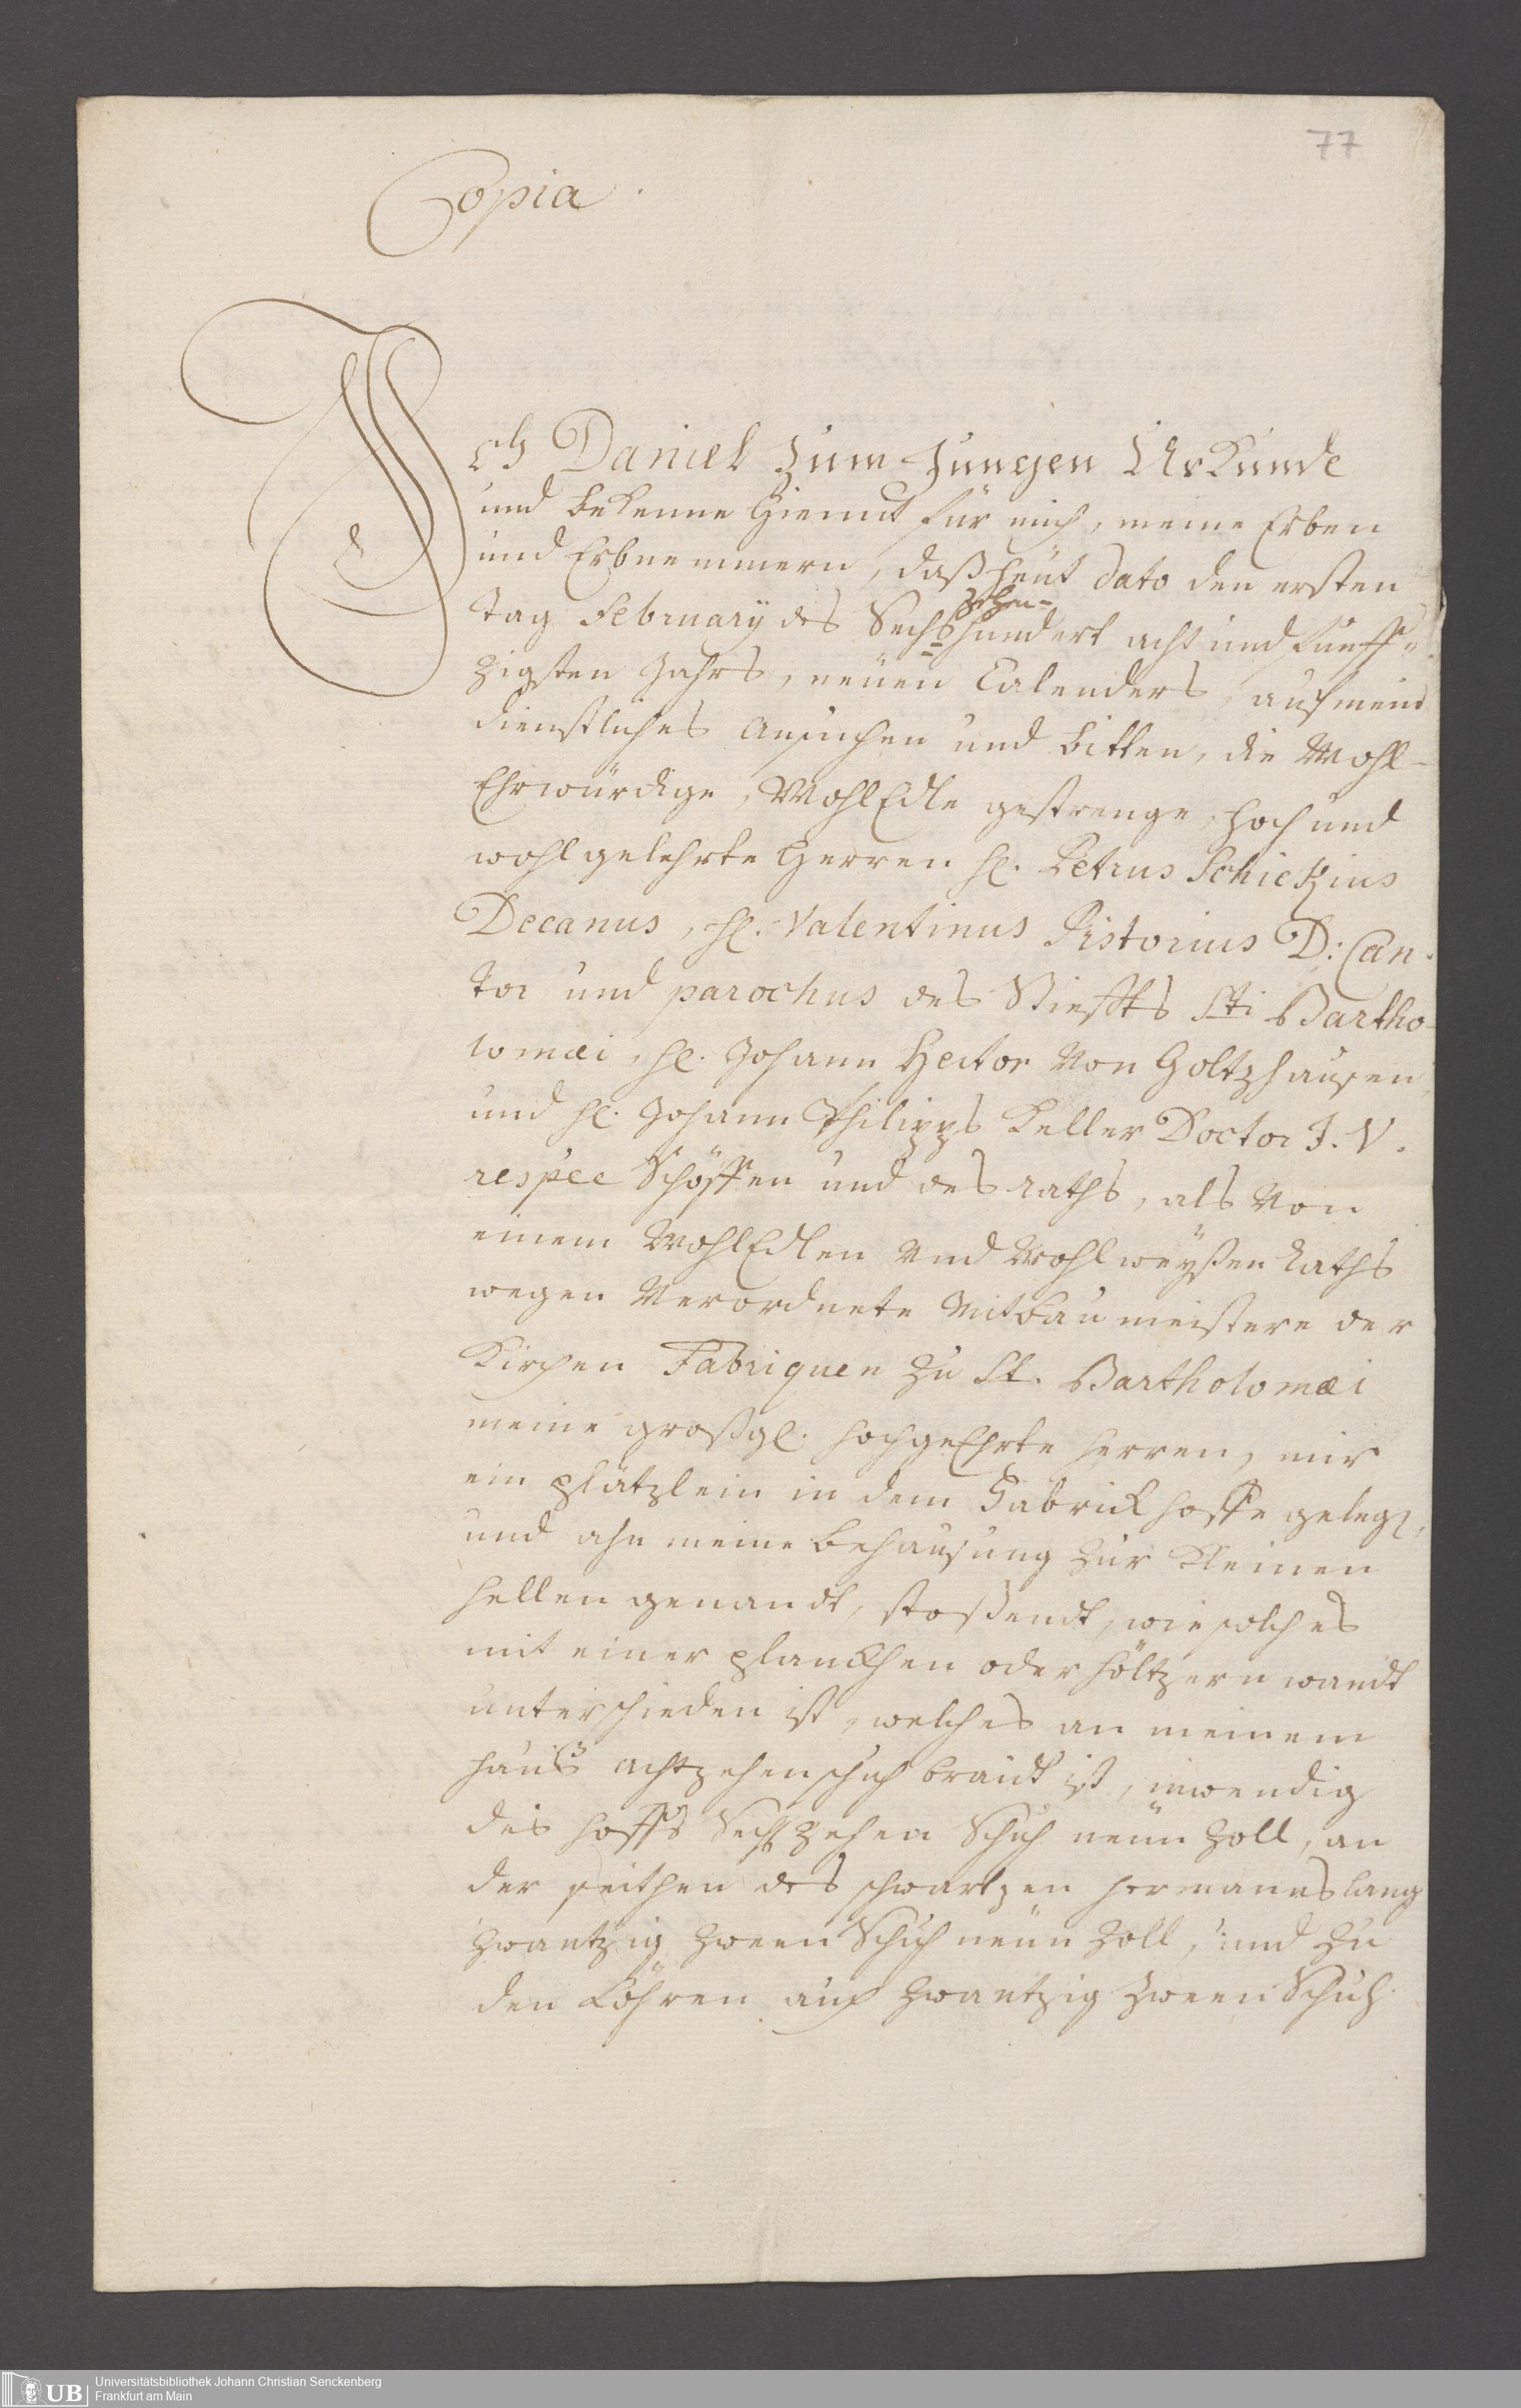 77
Copia.
Ich Daniel zum Jungen Urkunde
und bekenne hiemit für mich, meine Erben
und Erbnemmern, daß heut dato den ersten
tag February des Sechs zehen- hundert acht und fünff„
zigsten Jahrs, neüen Calenders, auf mein
dienstliches ansuchen und bitten, die Wohl-
Ehrwürdige, WohlEdle gestrenge, hoch und
wohl gelehrte Herren H. Petrus Schickius
Decanus, H. Valentinus Pistorius D: Can-
tor und parochus des Stieffts Sti Bartho-
lomæi, H. Johann Hector von Holtzhausen
und H. Johann Philipps Keller Doctor J. V.
respec Schöffen und des raths, als von
einem WohlEdlen und Wohlweyßen Raths
wegen verordnete Mitbaumeistere der
Kirchen Fabriquen zu St. Bartholomæi
meine großgl. hochgeEhrte Herren, mir
ein plätzlein in dem Fabrick hoffe gelegen,
und ahn meine behausung zur Kleinen
hellen genandt, stoßendt, wie solches
mit einer planckhen oder höltzern wandt
unterschieden ist, welches an meinem
hauß achtzehen schuh braidt ist, inwendig
des hoffs Sechzehen Schuh neun Zoll, an
der seithen des schwartzen Hermanns lang
zwantzig zween Schuh neun Zoll, und zu
den Löhren auch zwantzig zween Schuh
UB
Universitätsbibliothek Johann Christian Senckenberg
Frankfurt am Main